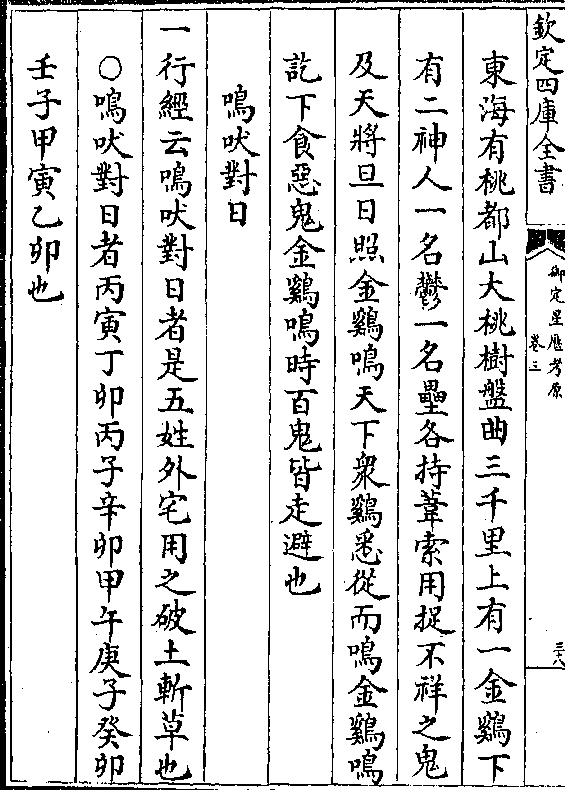 欽定四庫全書
御定星歴考原
卷三
三八
東海有桃都山大桃樹盤曲三千里上有一金鷄下
有二神人一名鬱一名壘各持葦索用捉不祥之鬼
及天將旦日照金鷄鳴天下衆鷄悉從而鳴金鷄鳴
訖下食惡鬼金鷄鳴時百鬼皆走避也
鳴吠對日
一行經云鳴吠對日者是五姓外宅用之破土斬草也
○鳴吠對日者丙寅丁卯丙子辛卯甲午庚子癸卯
壬子甲寅乙卯也